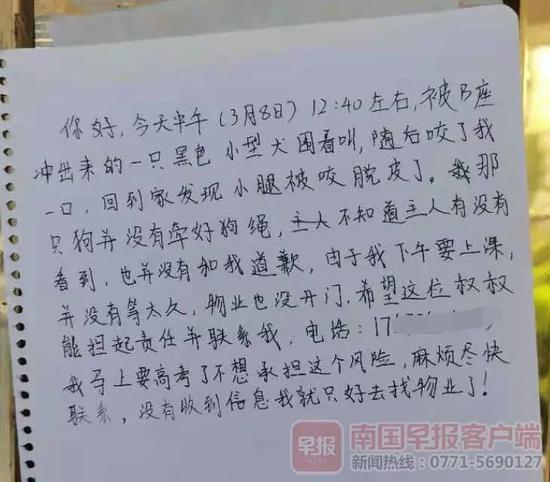 你好,今天中午(3月8日)12:40左右,被B座
冲出来的一只黑色小型犬围着叫,随后咬了我
一口,回到家发现小腿被咬脱皮了。我那
只狗并没有牵好狗绳,主人不知道主人有没有
看到,也并没有和我道歉,由于我下午要上课,
并没有等太久,物业也没开门,希望这位叔叔
能担起责任并联系我,电话:17
我马上要高考了不想承担这个风险,麻烦尽快
联系,没有收到信息我就只好去找物业了!
早报
南国早报客户端
新闻热线:0771-5690127